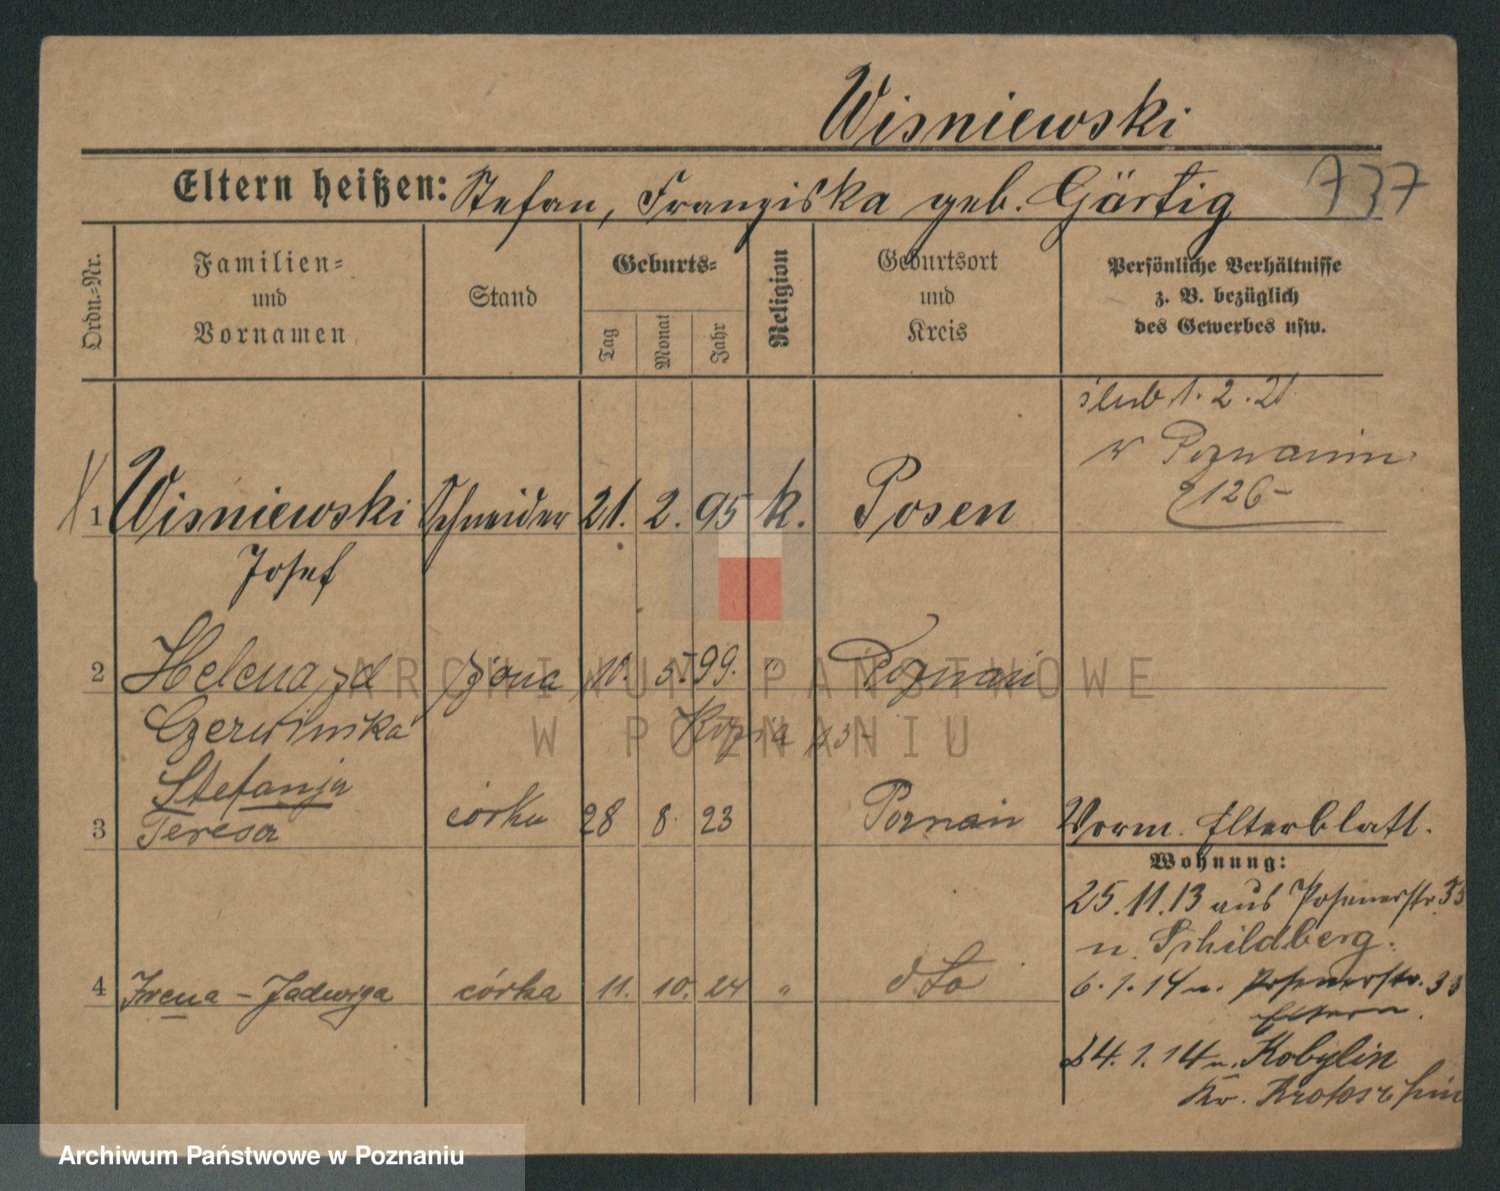 Wisniewski
Eltern heißen: Stefan, Franziska geb. Gärtig 737
Ordn.-Nr.
Familien-
und
Vornamen
Stand
Geburts-
Tag
Monat
Jahr
Religion
Geburtsort
und
Kreis
Persönliche Verhältnisse
z. B. bezüglich
des Gewerbes usw.
ślub 1. 2. 21
w Poznaniu
1 Wisniewski Schneider 21. 2. 95 k. Posen
Josef
2 Helena zd żona 10. 5. 99. " Poznań
Czerwińska
Stefanja
3 Teresa córka 28 8. 23 Poznań
Vorm. Elterblatt.
Wohnung:
25. 11. 13 aus Posenerstr. 33
n. Schildberg.
4 Irena - Jadwiga córka 11. 10. 24 " dto
6. 1. 14 n. Posenerstr. 33
Eltern.
24. 1. 14 n. Kobylin
Kr. Krotoschin
ARCHIWUM PAŃSTWOWE
W POZNANIU
Archiwum Państwowe w Poznaniu